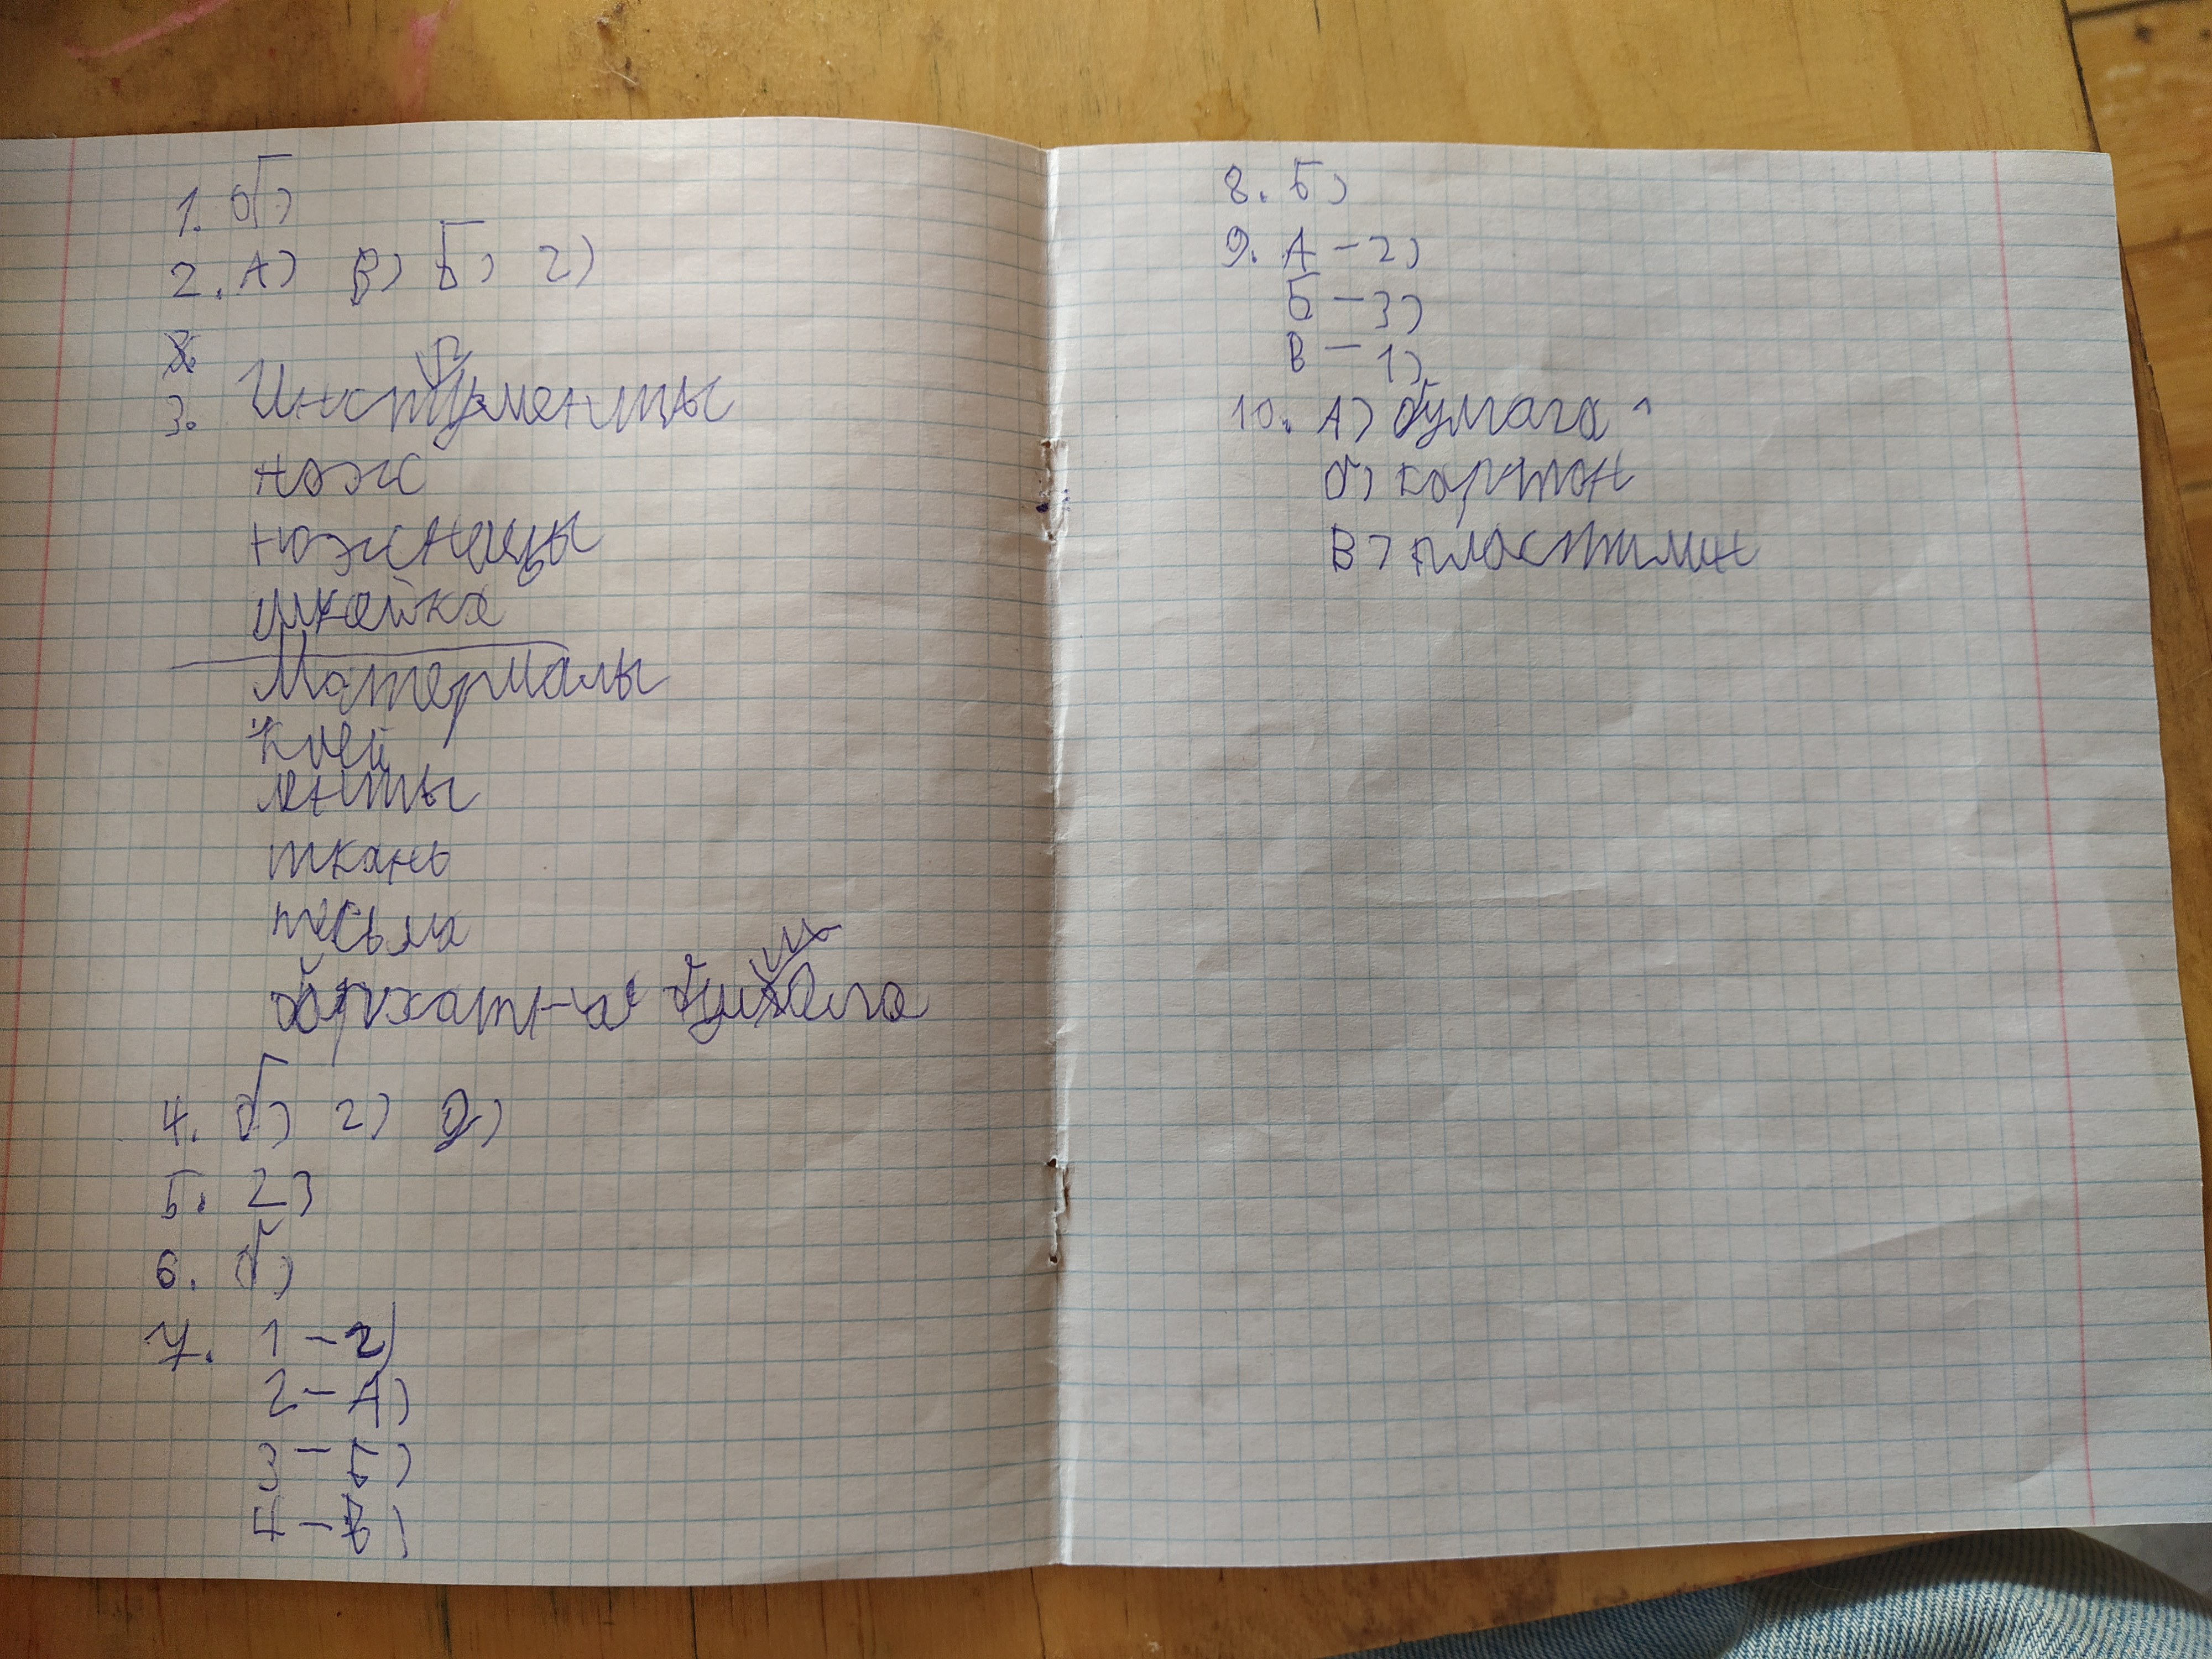 1. б)
2. А) В) Б) г)
3. Инструменты
нож
ножницы
линейка
Материалы
клей
ленты
ткань
тесьма
бархатная бумага
4. б) г) д)
5. г)
6. б)
7. 1 - г)
2 - А)
3 - Б)
4 - В)
8. Б)
9. А - 2)
Б - 3)
В - 1)
10. А) бумага
б) картон
В) пластилин